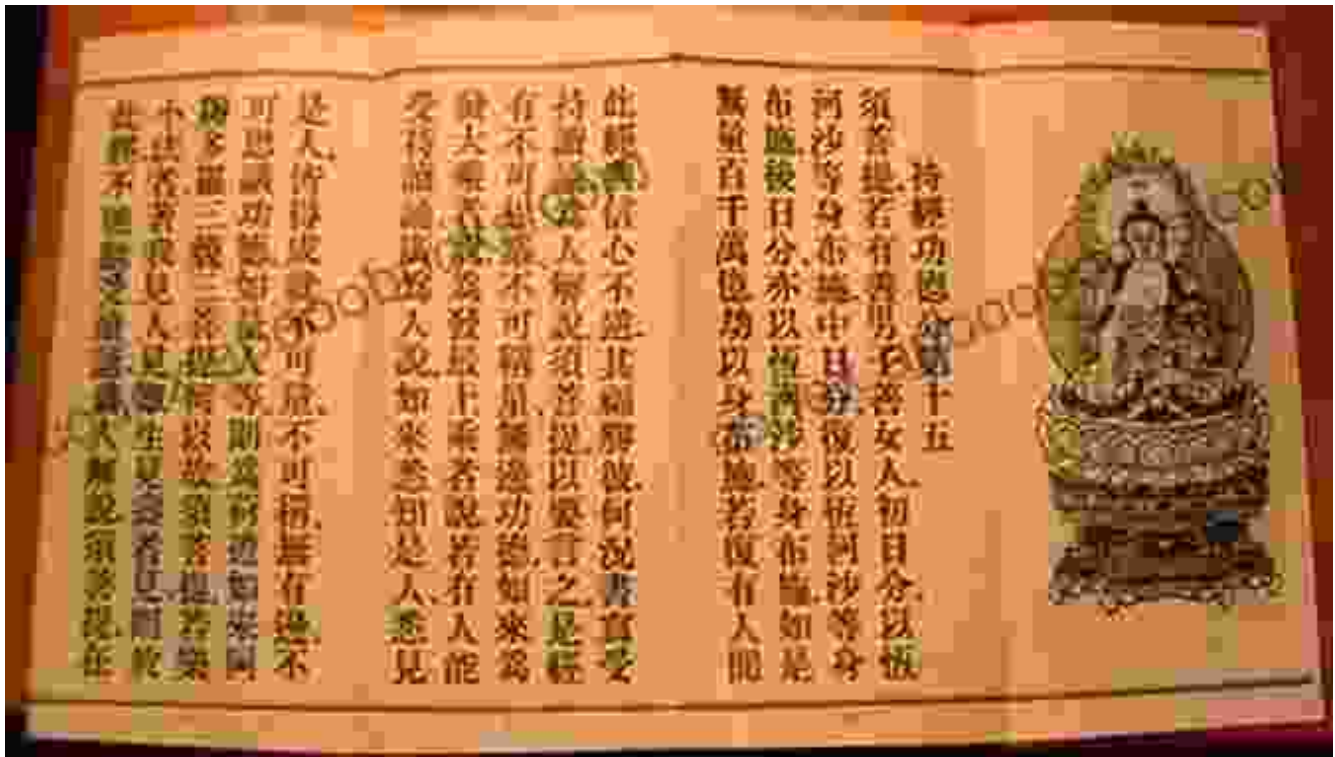 持經功德分第十五
須菩提若有善男子善女人初日分以恆
河沙等身布施中日分復以恆河沙等身
布施後日分亦以恆河沙等身布施如是
無量百千萬億劫以身布施若復有人聞
此經典信心不逆其福勝彼何況書寫受
持讀誦為人解說須菩提以要言之是經
有不可思議不可稱量無邊功德如來為
發大乘者說為發最上乘者說若有人能
受持讀誦廣為人說如來悉知是人悉見
是人皆得成就不可量不可稱無有邊不
可思議功德如是人等則為荷擔如來阿
耨多羅三藐三菩提何以故須菩提若樂
小法者著我見人見眾生見壽者見則於
此經不能聽受讀誦為人解說須菩提在